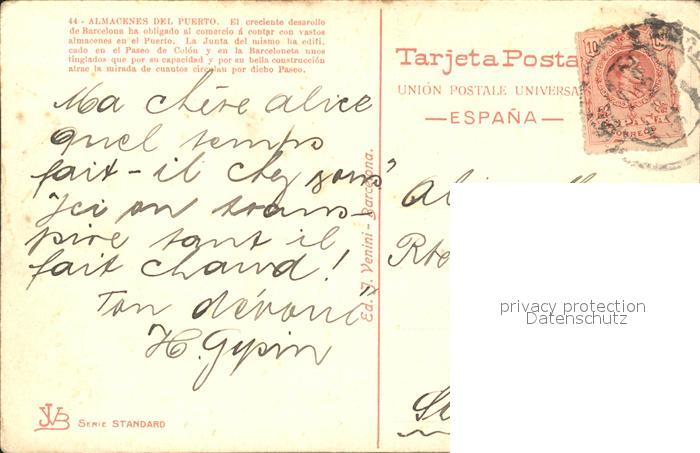 44 - ALMACENES DEL PUERTO. El creciente desarollo
de Barcelona ha obligado al comercio á contar con vastos
almacenes en el Puerto. La Junta del mismo ha edifi.
cado en el Paseo de Colón y en la Barceloneta unos
tinglados que por su capacidad y por su bella construcción
atrae la mirada de cuantos circulan por dicho Paseo.
Ma chére alice
quel temps
fait-il chez vous
Ici on trans-
pire tant il
fait chaud!
Ton dévoué
H.
JVB SERIE STANDARD
Ed. J. Venini - Barcelona.
Tarjeta Posta
UNIÓN POSTALE UNIVERSA
—ESPAÑA—
10
CORREOS
Rte
privacy protection
Datenschutz